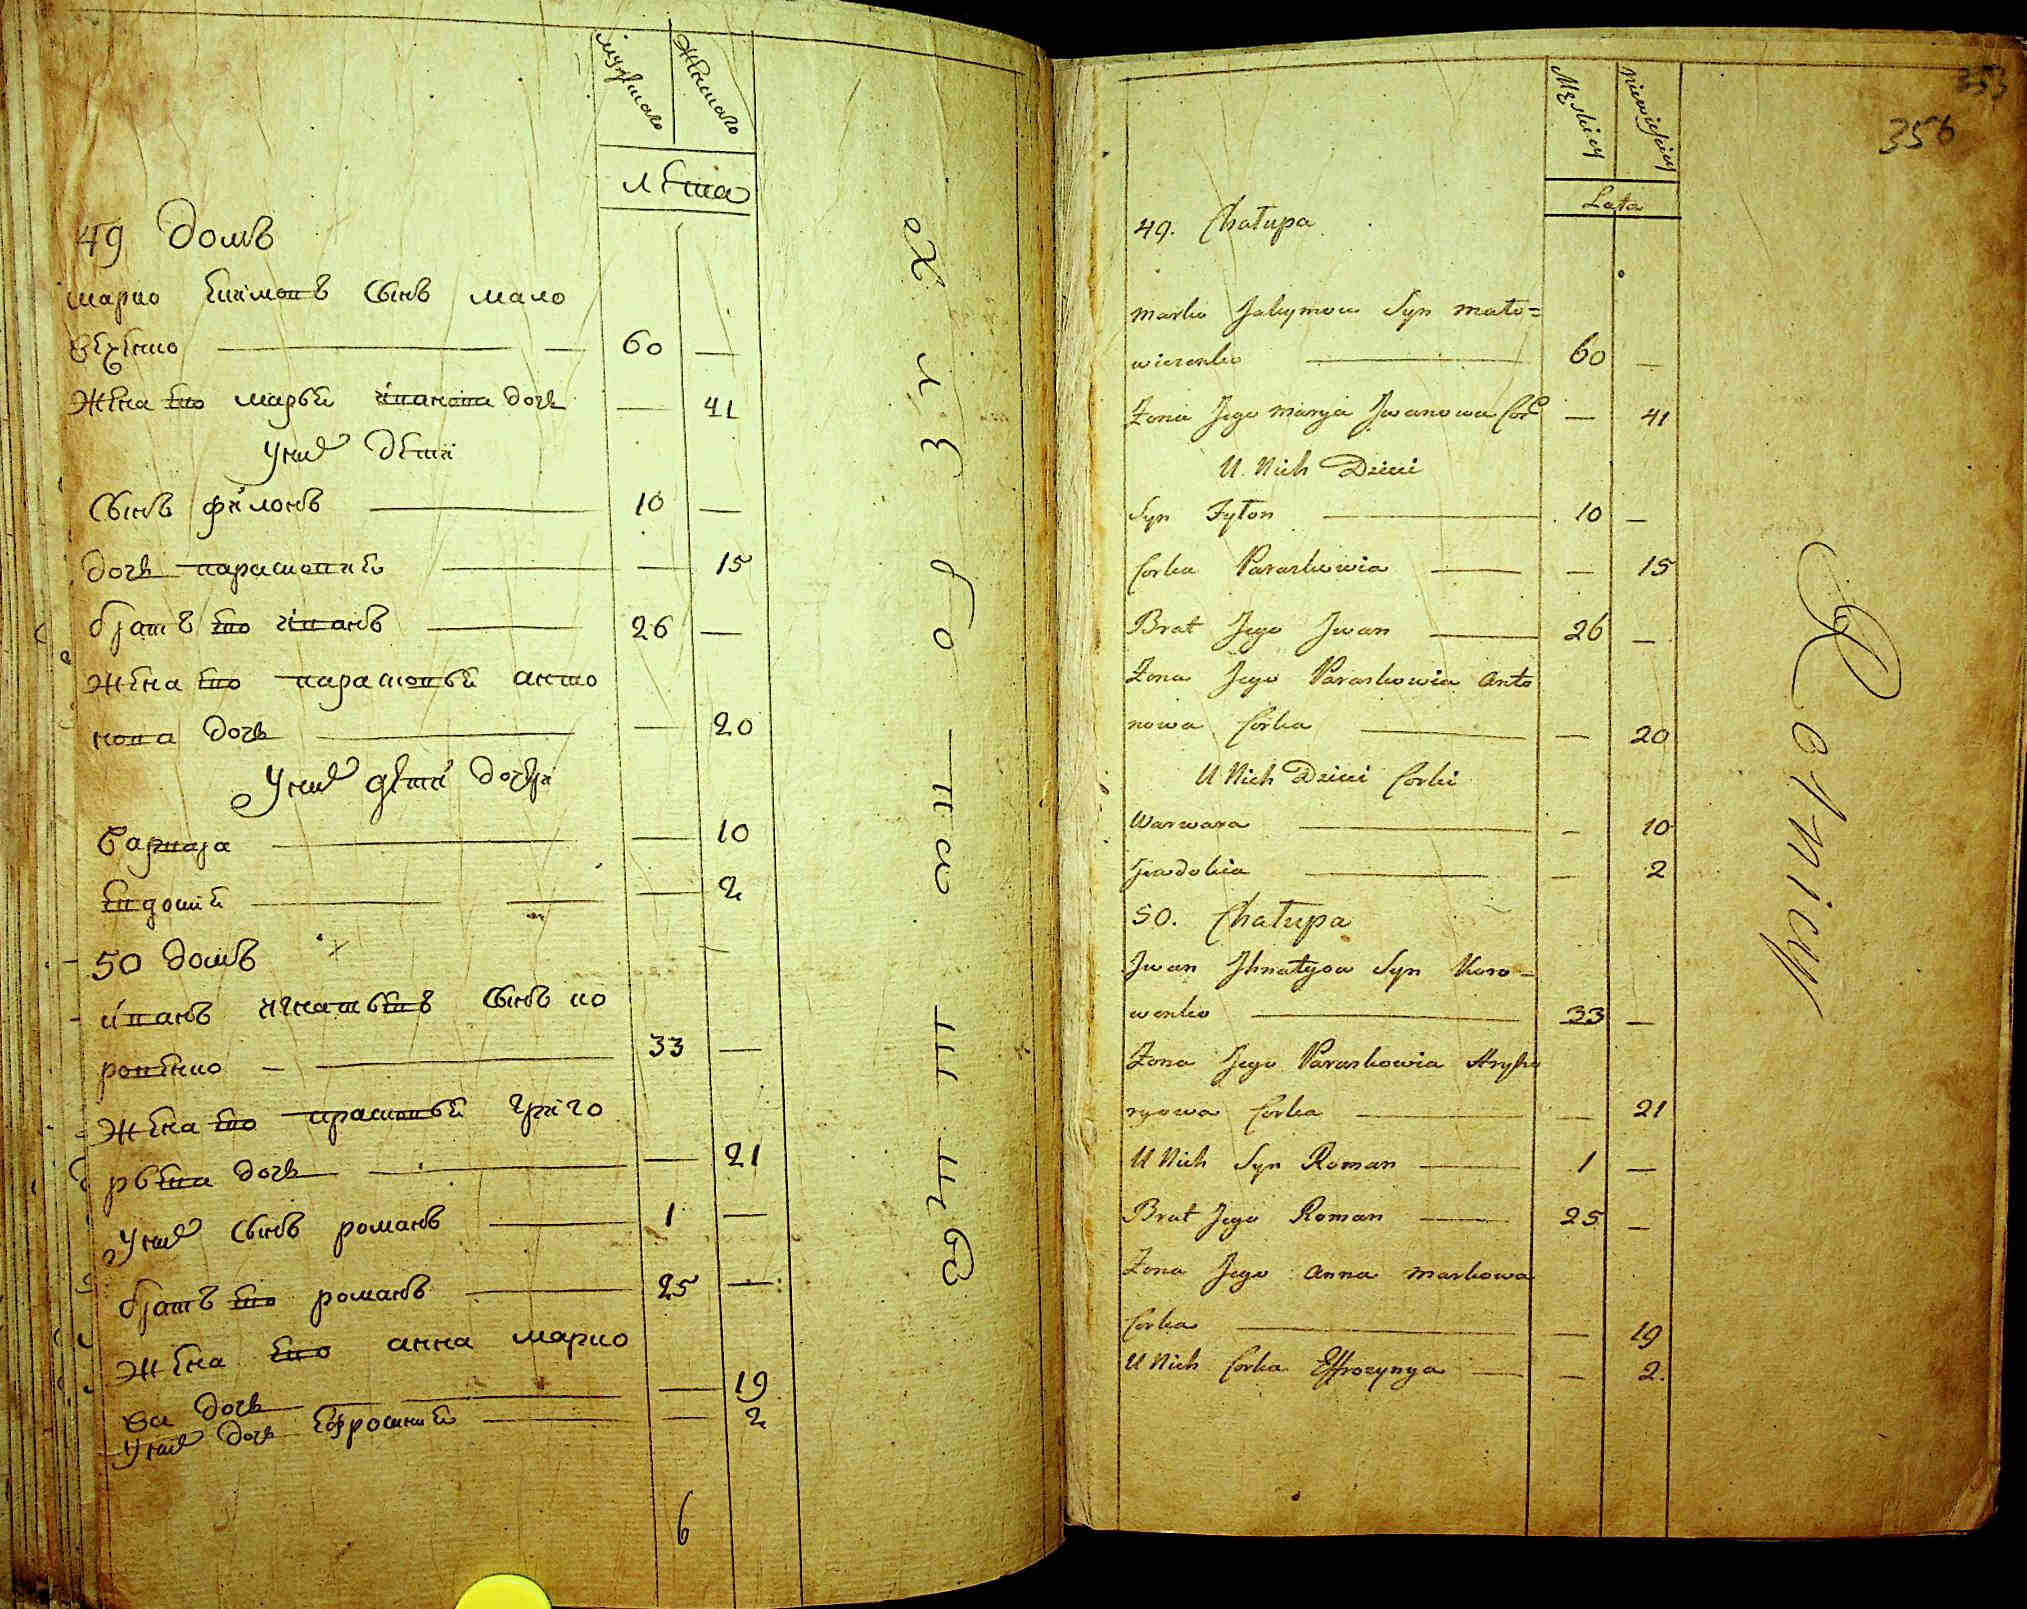 мужска
женска
лѣта
49 домъ
марко Екимовъ сынъ мало
веренко 60 —
жена его марья иванова дочь — 41
у них дѣти
сынъ филонъ 10 —
дочь парасковия — 15
братъ его иванъ 26 —
жена его парасковья анто
нова дочь — 20
у них дѣти дочери
варвара — 10
Евдокия — 2
50 домъ
иванъ игнатьевъ сынъ ко
ровенко 33 —
жена его прасковья григо
рьева дочь — 21
у них сынъ романъ 1 —
братъ его романъ 25 —
жена его анна марко
ва дочь — 19
у них дочь Ефросиния — 2
6
353
356
Męskiey
niewieskiey
Lata
49. Chałupa
Marko Jakymow Syn Mało=
wierenko 60 —
Zona Jego Marya Jwanowa Cor — 41
U Nich Dzieci
Syn Fyłon 10 —
Corka Paraskowia — 15
Brat Jego Jwan 26 —
Zona Jego Paraskowia Anto
nowa Corka — 20
U Nich Dzieci Corki
Warwara — 10
Jewdokia — 2
50. Chałupa
Jwan Jhnatyow Syn Koro=
wenko 33 —
Zona Jego Paraskowia Hryho
ryowa Corka — 21
U Nich Syn Roman 1 —
Brat Jego Roman 25 —
Zona Jego Anna Markowa
Corka — 19
U Nich Corka Effrozynya — 2.
Rolnicy